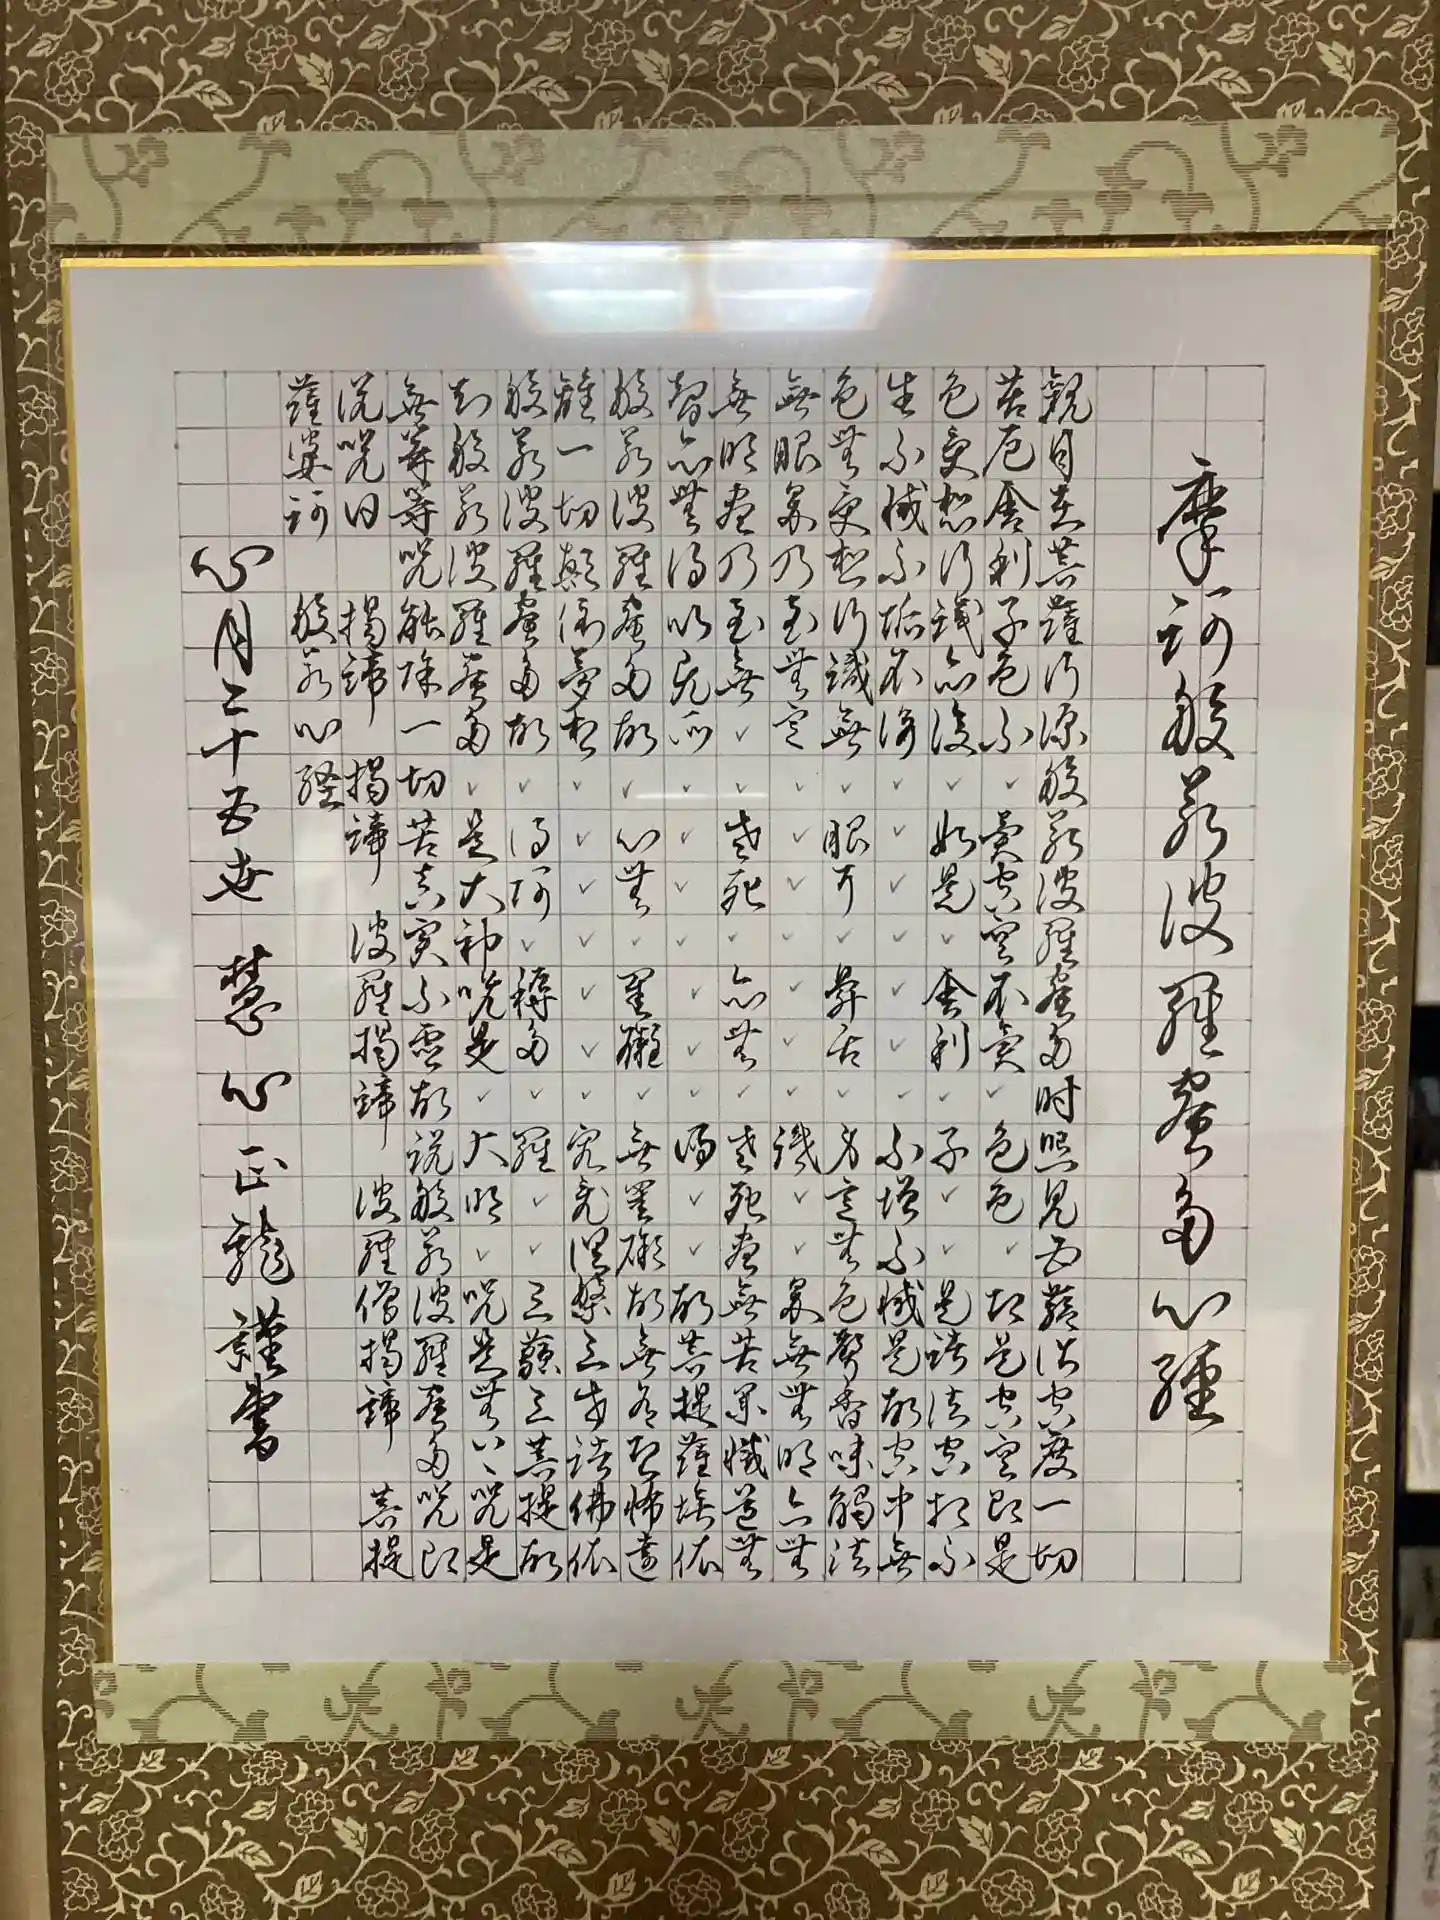 摩訶般若波羅蜜多心經
観自在菩薩行深般若波羅蜜多時照見五蘊皆空度一切
苦厄舎利子色不異空空不異色色即是空空即是
色受想行識亦復如是舎利子是諸法空相不
生不滅不垢不浄不増不減是故空中無
色無受想行識無眼耳鼻舌身意無色聲香味觸法
無眼界乃至無意識界無無明亦無
無明盡乃至無老死亦無老死盡無苦集滅道無
智亦無得以無所得故菩提薩埵依
般若波羅蜜多故心無罣礙無罣礙故無有恐怖遠
離一切顛倒夢想究竟涅槃三世諸佛依
般若波羅蜜多故得阿耨多羅三藐三菩提故
知般若波羅蜜多是大神呪是大明呪是無上呪是
無等等呪能除一切苦真実不虚故説般若波羅蜜多呪即
説呪曰 揭諦 揭諦 波羅揭諦 波羅僧揭諦 菩提
薩婆訶 般若心経
心月二十五世 慧心正龍謹書